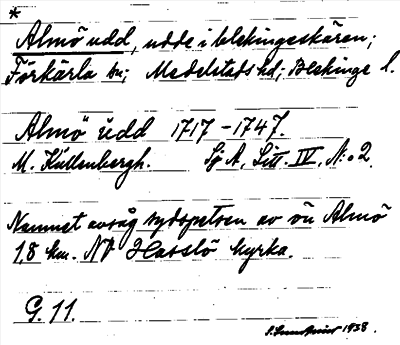 *
Almö udd, udde i blekingeskären;
Förkärla sn; Medelstads hd; Blekinge l.
Almö udd 1717-1747.
M. Kullenbergh. Sj A, Litt. IV, N:o 2.
Namnet avsåg sydspetsen av ön Almö
1,8 km. NV Hasslö kyrka.
G. 11.
1938.